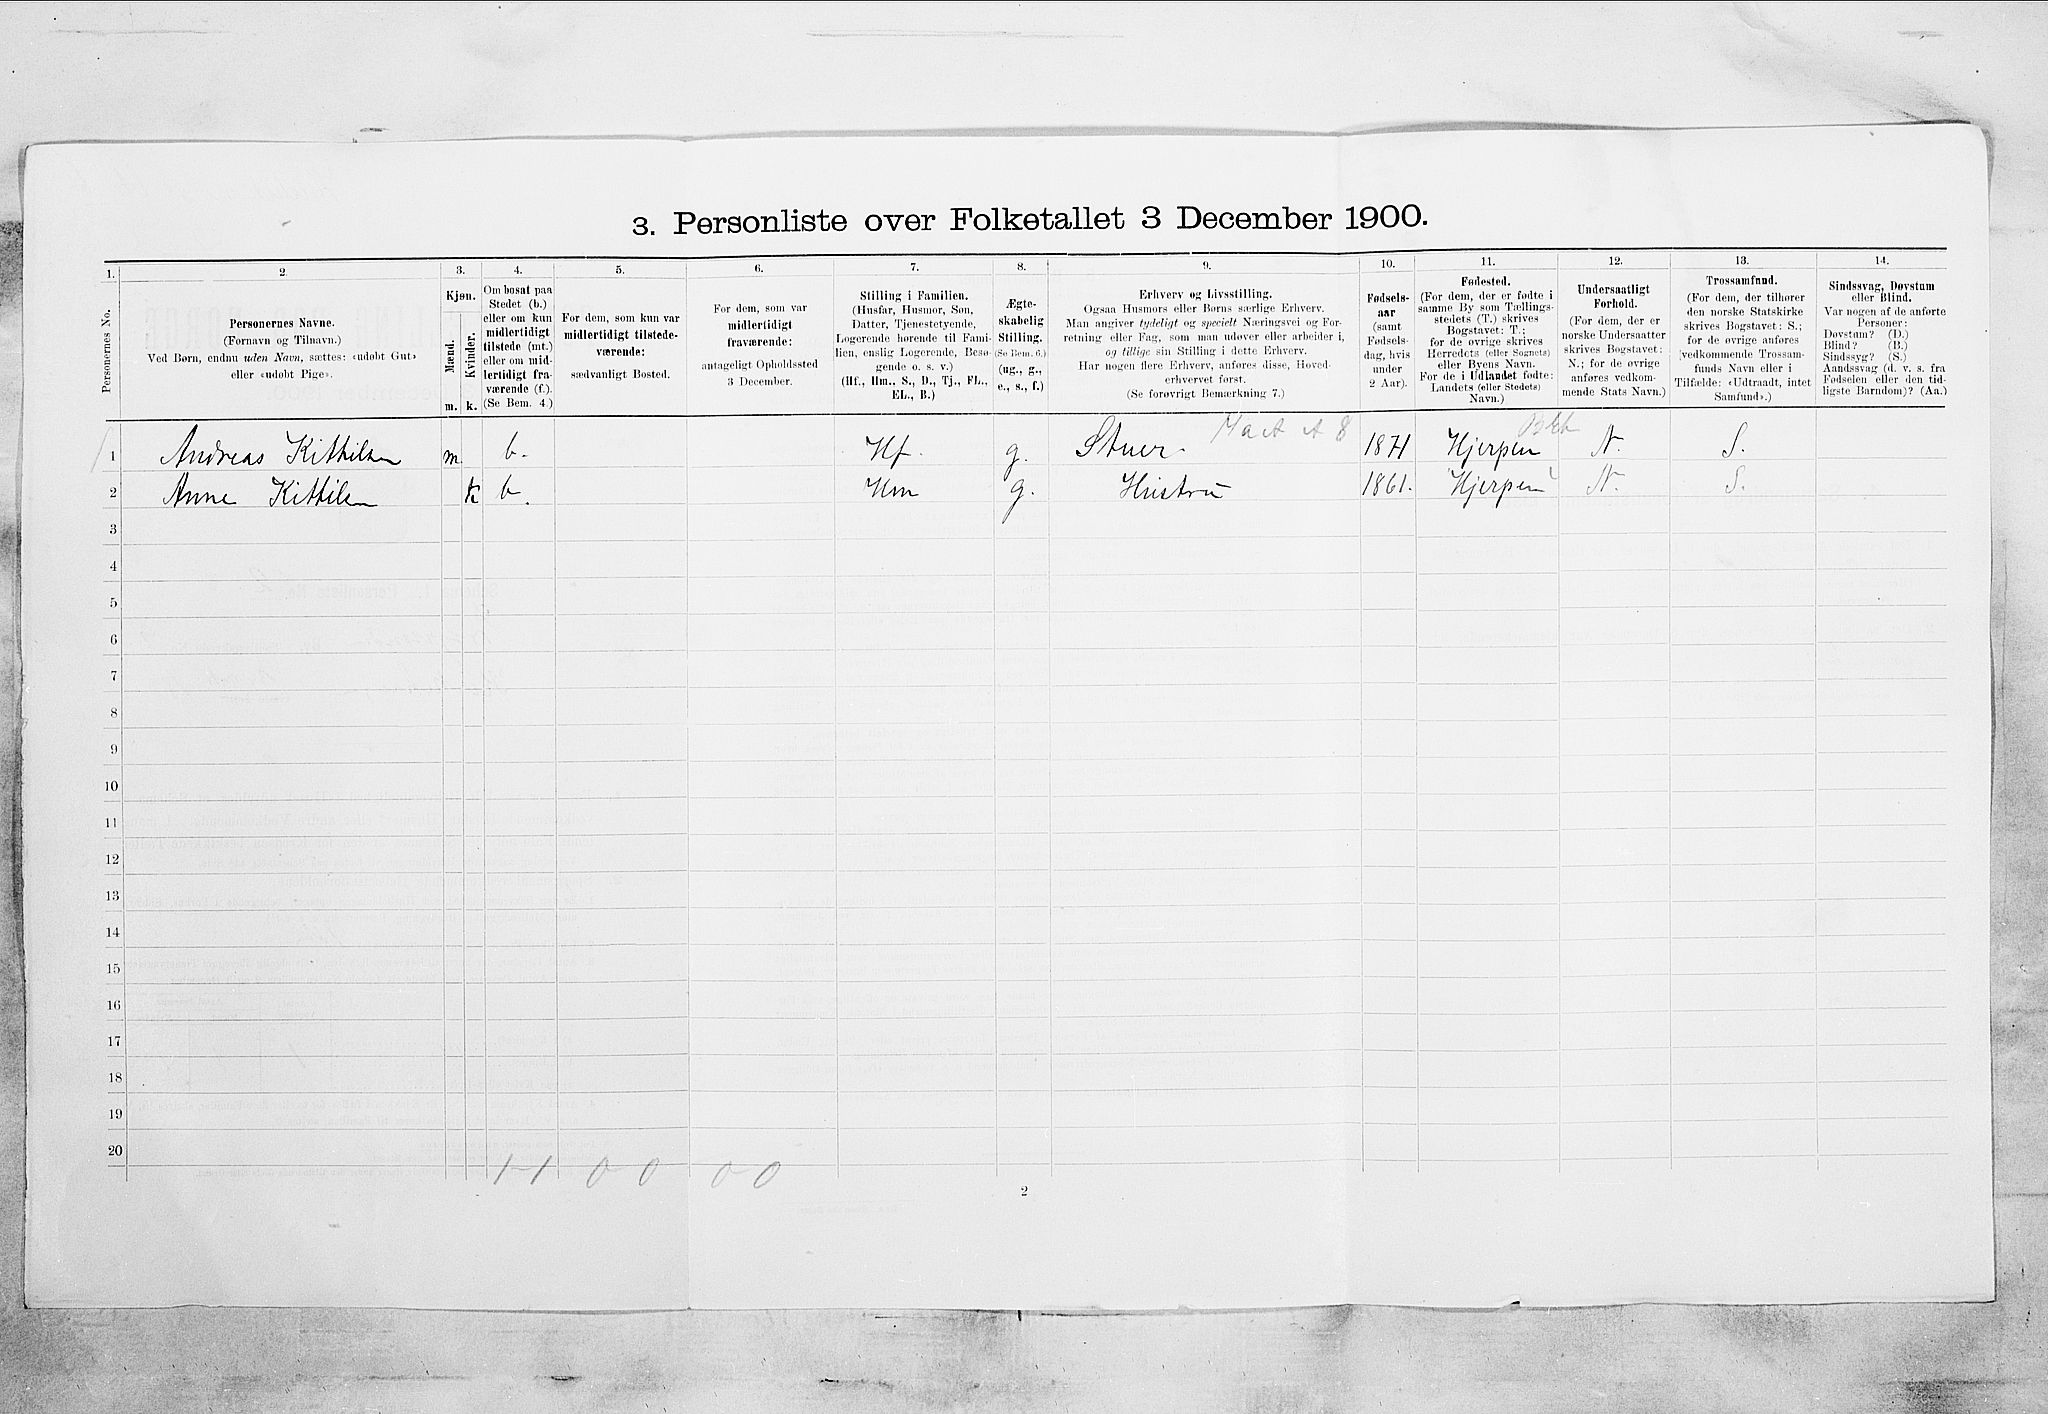 3. Personliste over Folketallet 3 December 1900.
1. 2. 3. 4. 5. 6. 7. 8. 9. 10. 11. 12. 13. 14.
Personernes No.
Personernes Navne.
(Fornavn og Tilnavn.)
Ved Børn, endnu uden Navn, sættes: «udøbt Gut»
eller «udøbt Pige».
Kjøn.
Mænd.
Kvinder.
m. k.
Om bosat paa
Stedet (b.)
eller om kun
midlertidigt
tilstede (mt.)
eller om mid-
lertidigt fra-
værende (f.).
(Se Bem. 4.)
For dem, som kun var
midlertidigt tilstede-
værende:
sædvanligt Bosted.
For dem, som var
midlertidigt
fraværende:
antageligt Opholdssted
3 December.
Stilling i Familien.
(Husfar, Husmor, Søn,
Datter, Tjenestetyende,
Logerende hørende til Fami-
lien, enslig Logerende, Besø-
gende o. s. v.)
(Hf., Hm., S., D., Tj., FL.,
EL., B.)
Ægte-
skabelig
Stilling.
(Se Bem. 6.)
(ug., g.,
e., s., f.)
Erhverv og Livsstilling.
Ogsaa Husmors eller Børns særlige Erhverv.
Man angiver tydeligt og specielt Næringsvei og For-
retning eller Fag, som man udøver eller arbeider i,
og tillige sin Stilling i dette Erhverv.
Har nogen flere Erhverv, anføres disse, Hoved-
erhvervet først.
(Se forøvrigt Bemærkning 7.)
Fødsels-
aar
(samt
Fødsels-
dag, hvis
under
2 Aar).
Fødested.
(For dem, der er fødte i
samme By som Tællings-
stedets (T.) skrives
Bogstavet: T.;
for de øvrige skrives
Herredets (eller Sognets)
eller Byens Navn.
For de i Udlandet fødte:
Landets (eller Stedets)
Navn.)
Undersaatligt
Forhold.
(For dem, der er
norske Undersaatter
skrives Bogstavet:
N.; for de øvrige
anføres vedkom-
mende Stats Navn.)
Trossamfund.
(For dem, der tilhører
den norske Statskirke
skrives Bogstavet: S.;
for de øvrige anføres
vedkommende Trossam-
funds Navn eller i
Tilfælde: «Udtraadt, intet
Samfund».)
Sindssvag, Døvstum
eller Blind.
Var nogen af de anførte
Personer:
Døvstum? (D.)
Blind? (B.)
Sindssyg? (S.)
Aandssvag (d. v. s. fra
Fødselen eller den tid-
ligste Barndom)? (Aa.)
1 Andreas Kittilsen m. b. Hf. g. Stuer 1871 Hjerpen N. S.
2 Anne Kittilsen k b. Hm g. Hustru 1861. Hjerpen N. S.
3
4
5
6
7
8
9
10
11
12
13
14
15
16
17
18
19
20
1-1 0 0 0 0
2